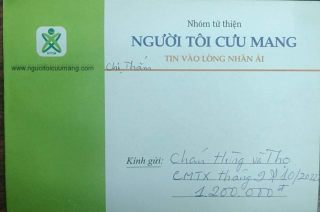 Nhóm từ thiện
NGƯỜI TÔI CƯU MANG
TIN VÀO LÒNG NHÂN ÁI
www.nguoitoicuumang.com
Chị Thắm
Kính gửi: Cháu Hùng và Thọ
CMTX tháng 9
1.200.000đ